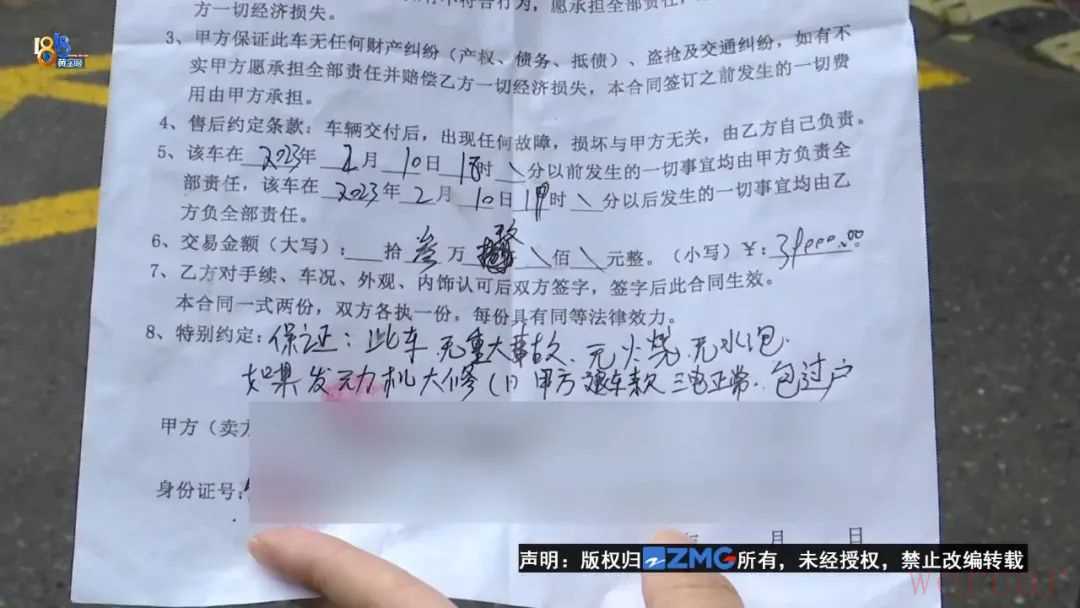 1818
黄金眼
方一切经济损失。
3、甲方保证此车无任何财产纠纷（产权、债务、抵债）、盗抢及交通纠纷，如有不
实甲方愿承担全部责任并赔偿乙方一切经济损失，本合同签订之前发生的一切费
用由甲方承担。
4、售后约定条款：车辆交付后，出现任何故障，损坏与甲方无关，由乙方自己负责。
5、该车在2023年2月10日18时\分以前发生的一切事宜均由甲方负责全
部责任，该车在2023年2月10日时\分以后发生的一切事宜均由乙
方负全部责任。
6、交易金额（大写）：拾叁万\佰\元整。（小写）￥：
7、乙方对手续、车况、外观、内饰认可后双方签字，签字后此合同生效。
本合同一式两份，双方各执一份。每份具有同等法律效力。
8、特别约定：保证：此车无重大事故、无火烧、无水泡.
如果发动机大修(1)甲方退车款 三电正常.包过户
甲方（卖方
身份证号：
月 日
声明：版权归ZMG所有，未经授权，禁止改编转载